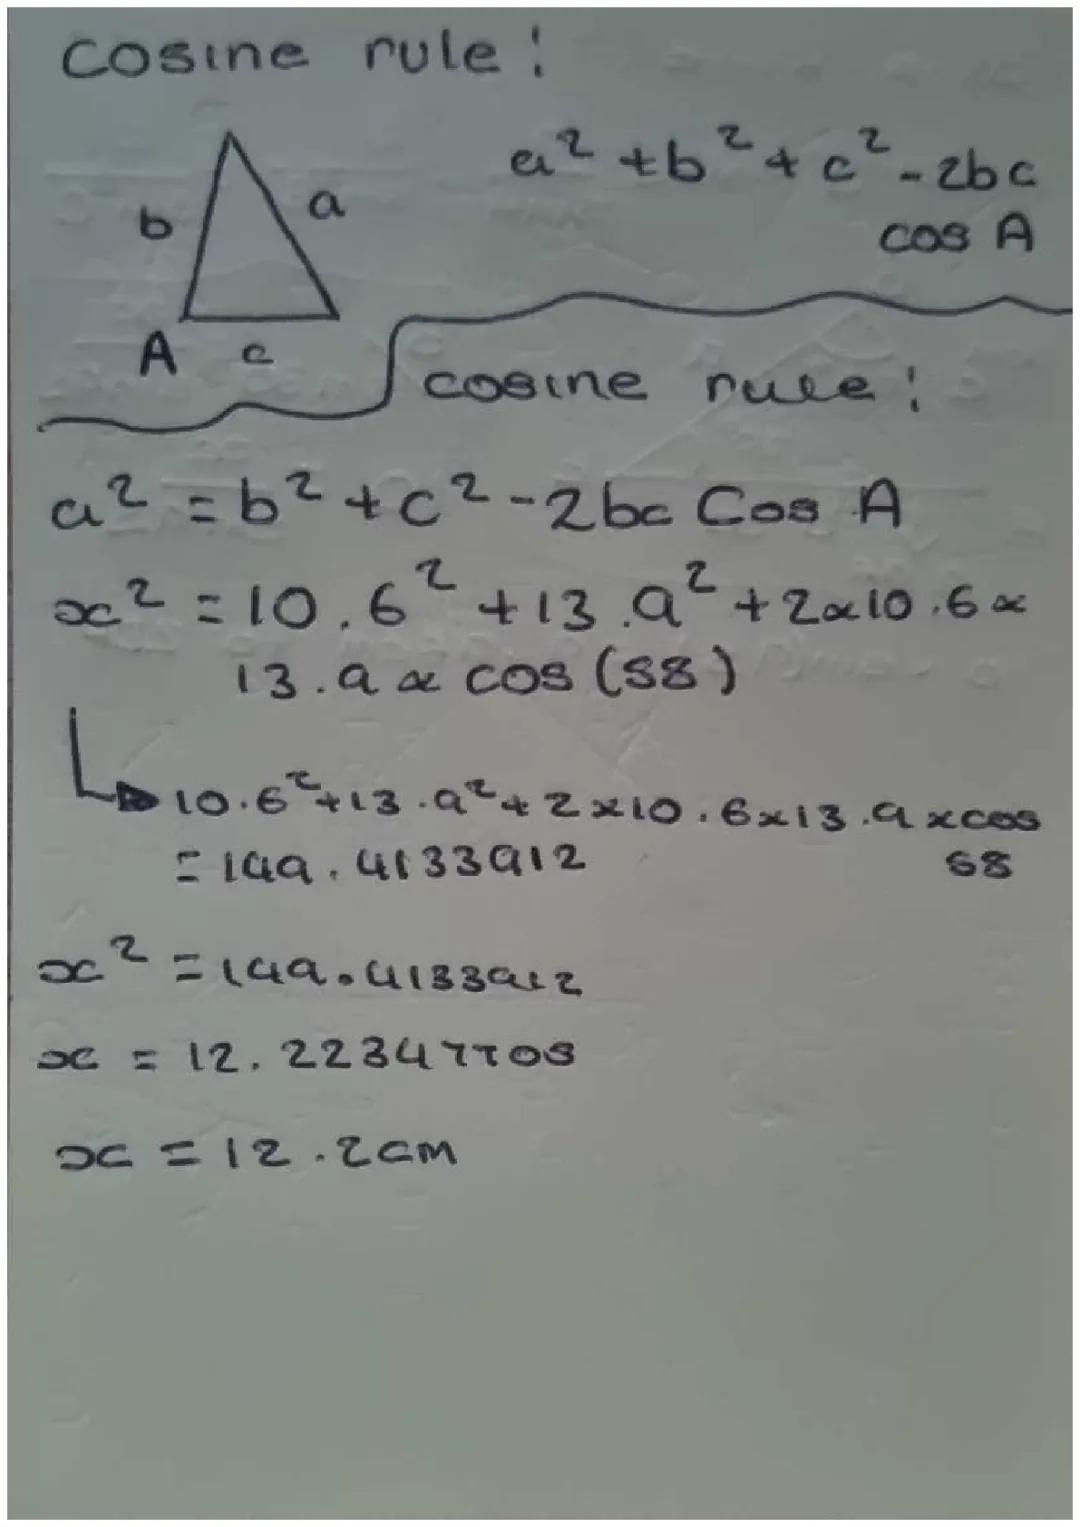 cosine rule:
a² + b² + c² - 2bc
cos A
b
a
A
c
cosine rule:
a² = b² + c² - 2bc Cos A
x² = 10.6² + 13.9² + 2x10.6x
13.9 x cos (58)
10.6² + 13.9² + 2x10.6x13.9 x cos
58
= 149.4133912
x² = 149.4133912
x = 12.22347705
x = 12.2cm